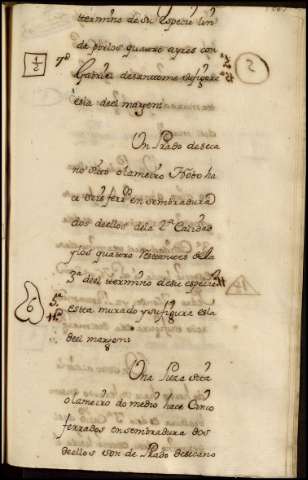 termino de su Especie lin
de por los quatro ayres con
Gabriel de santome su figura
es la del margen
Un Prado de seca
no sitio o lameiro todo ha
ce seis ferrdos en sembradura
dos de ellos de la 2ª Calidad
y los quatro restantes de la
3ª del termino de su especie
esta murado y su figura es la
del margen
Una Pieza sita
o lameiro do medio hace Cinco
ferrados en sembradura dos
de ellos son de Prado de secano